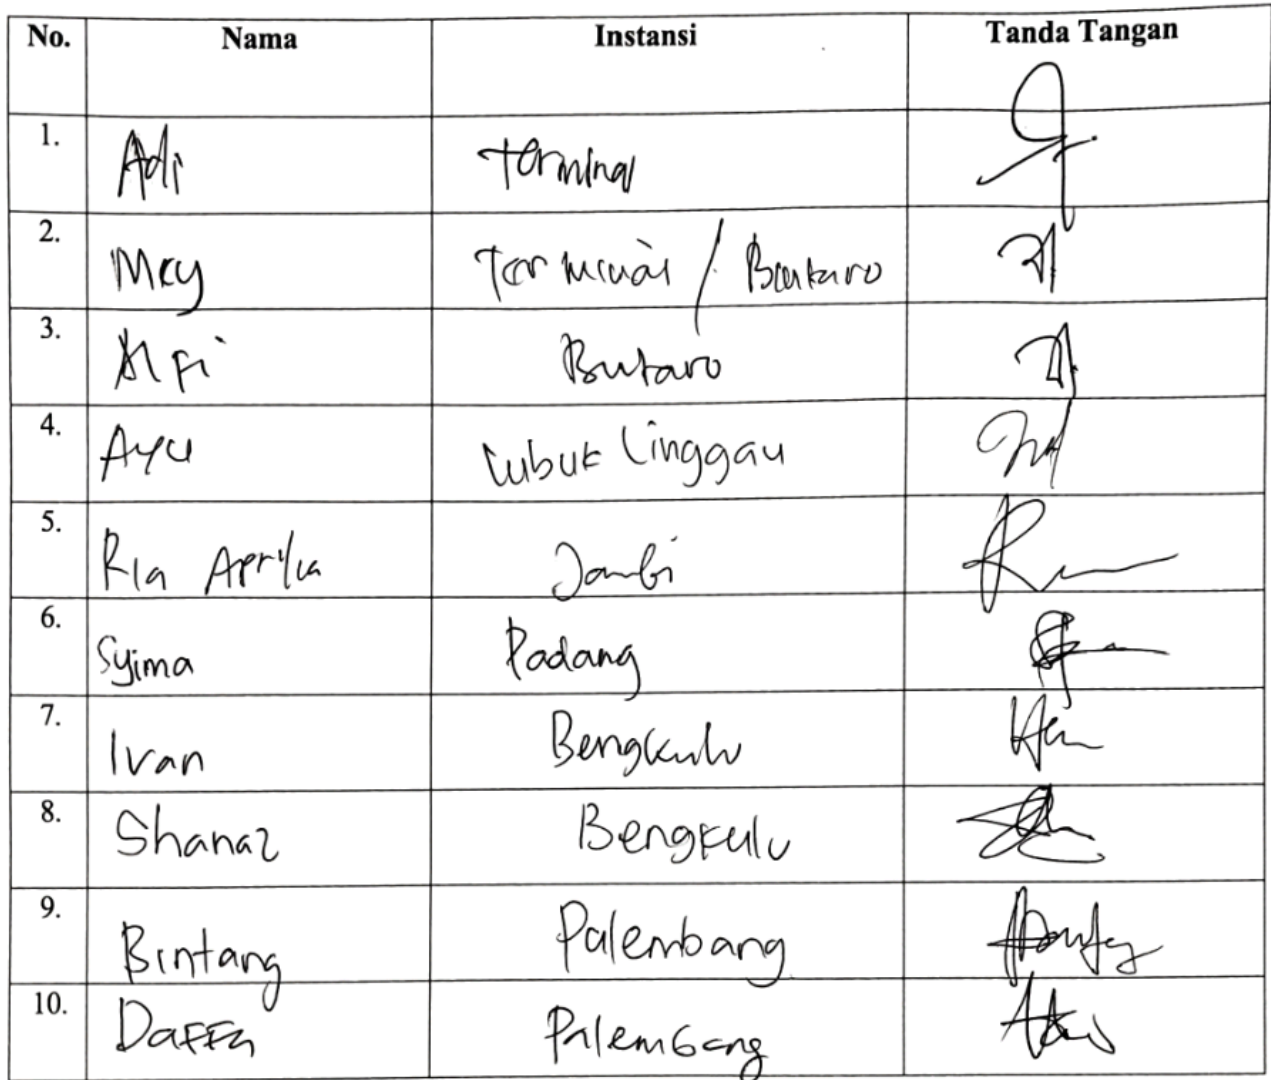 No. Nama Instansi Tanda Tangan
1. Adi Terminal
2. Mey Terminal /
3. Alfi Butaro
4. Ayu Lubuk Linggau
5. Ria Aprilia Jambi
6. Syima Padang
7. Ivan Bengkulu
8. Shanaz Bengkulu
9. Bintang Palembang
10. Daffa Palembang